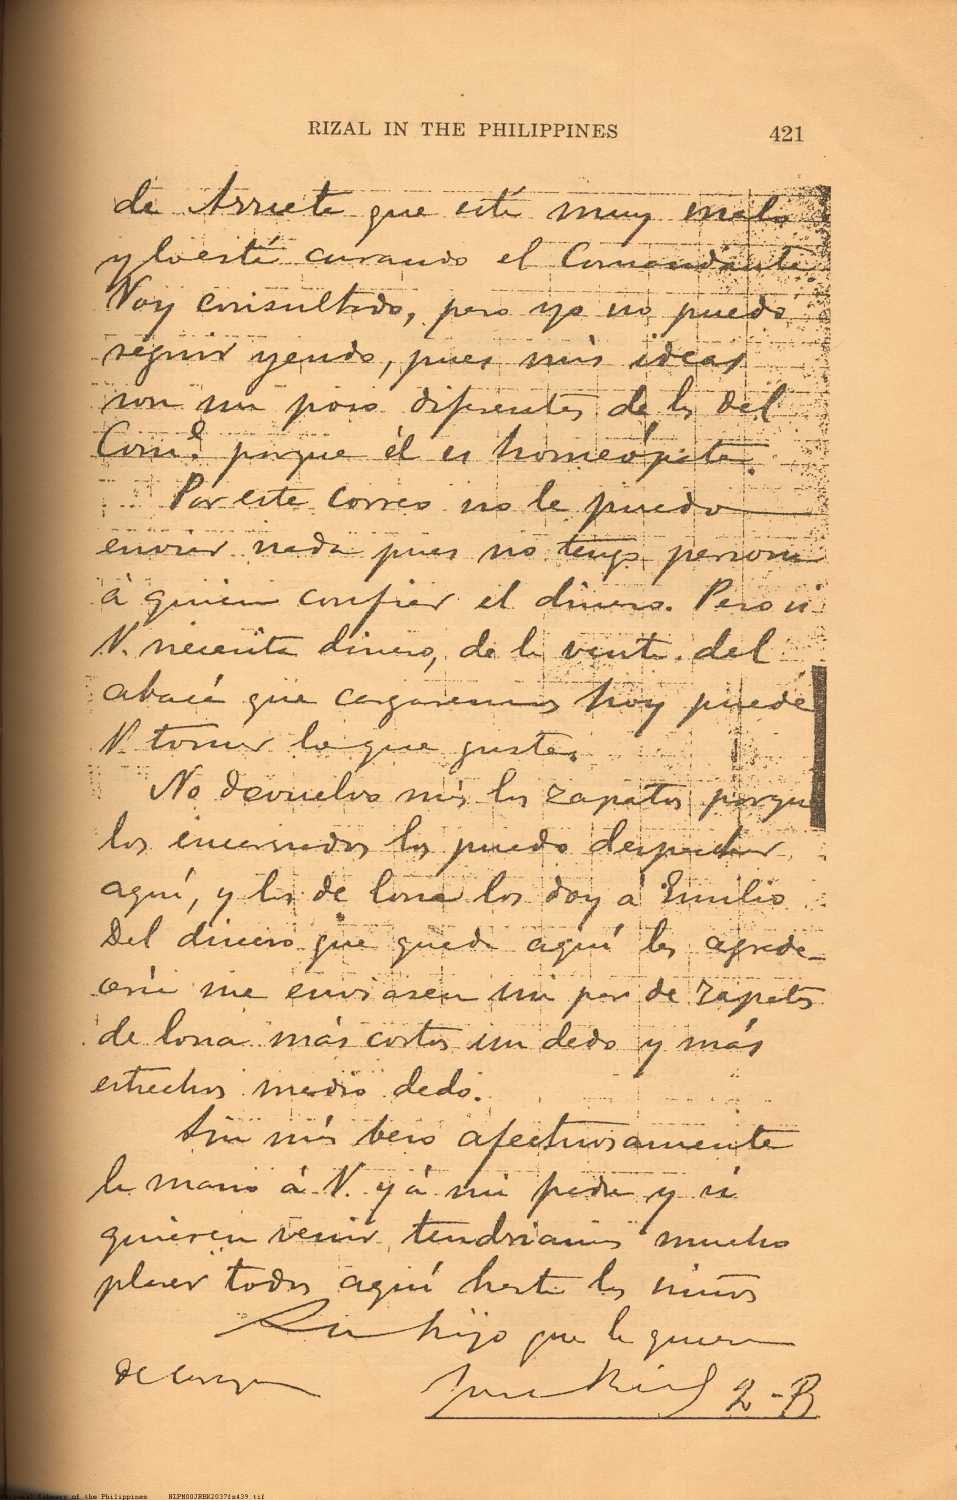 RIZAL IN THE PHILIPPINES 421
de Arrieta que está muy malo
y lo está curando el Comandante
Voy consultado, pero yo no puedo
seguir yendo, pues mis ideas
son un poco diferentes de las del
Com.e porque él es homeópata.
Por este correo no le puedo
enviar nada pues no tengo persona
á quien confiar el dinero. Pero si
V. necesita dinero, de la venta del
abacá que cargaremos hoy puede
V. tomar lo que guste.
No devuelvo más los zapatos porque
los encarnados los puedo despachar
aquí, y los de lona los doy á Emilio
Del dinero que quede aquí les agrade-
cería me enviasen un par de zapatos
de lona más cortos un dedo y más
estrechos medio dedo.
Sin más beso afectuosamente
la mano á V. y á mi padre y si
quieren venir, tendríamos mucho
placer todos aquí hasta los niños
Su hijo que la quiere
de corazon José Rizal 2-B
National Library of the Philippines NLPM00JRBK2037fs439.tif